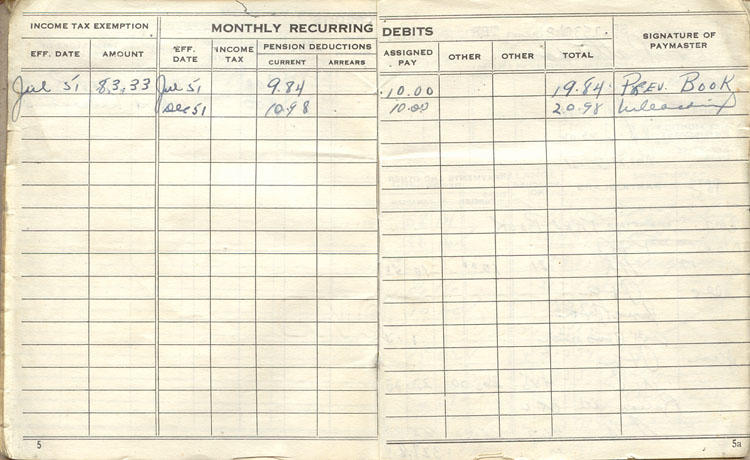 INCOME TAX EXEMPTION MONTHLY RECURRING DEBITS SIGNATURE OF PAYMASTER
EFF. DATE AMOUNT EFF. DATE INCOME TAX PENSION DEDUCTIONS ASSIGNED PAY OTHER OTHER TOTAL
CURRENT ARREARS
Jul 51 83.33 Jul 51 9.84 10.00 19.84 PREV. BOOK
Dec 51 10.98 10.00 20.98
5 5a